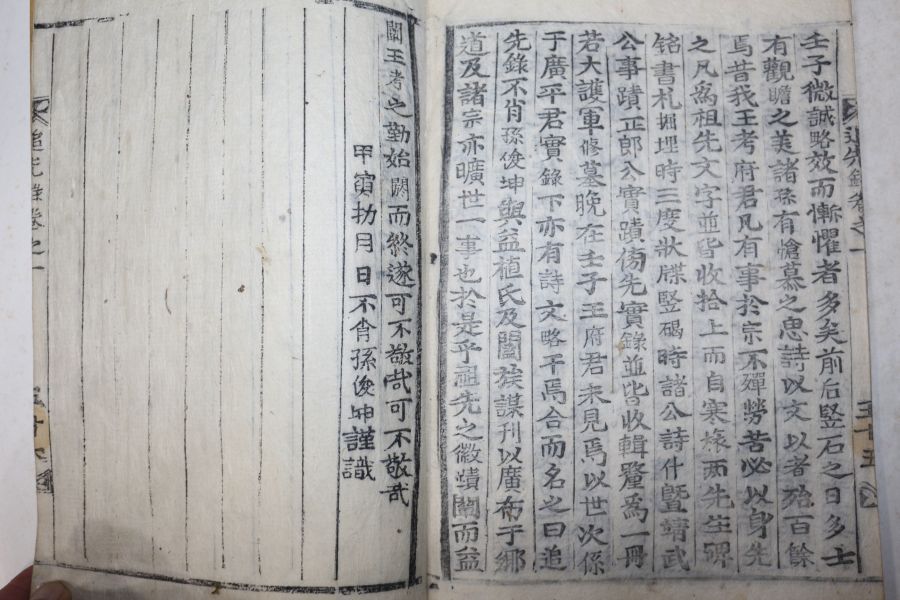 壬子微誠略效而慚懼者多矣前后竪石之日多士
有觀瞻之美諸孫有愴慕之思詩以文以者殆百餘
焉昔我王考府君凡有事於宗不殫勞苦必以身先
之凡爲祖先文字並皆收拾上而自寒旅兩先生碑
銘書札掘埋時三度狀牒竪碣時諸公詩什曁靖武
公事蹟正郎公實蹟傍先實錄並皆收輯釐爲一冊
若大護軍修墓晩在壬子王府君未見焉以世次係
于廣平君實錄下亦有詩文略干焉合而名之曰追
先錄不肖孫俊坤與益植氏及闔族謀刊以廣布于鄕
道及諸宗亦曠世一事也於是乎祖先之徽蹟闡而益
闡王考之勤始闕而終遂可不敬哉可不敬哉
甲寅月日不肖孫俊坤謹識
追先錄卷之一
五十五
追先錄卷之一
五十六